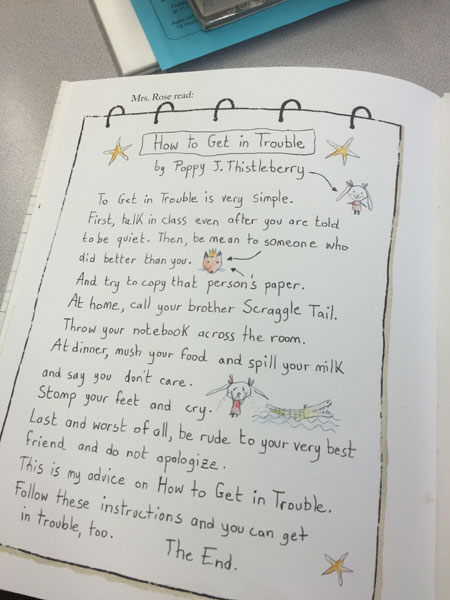 Mrs. Rose read:
How to Get in Trouble
by Poppy J. Thistleberry
To Get in Trouble is very simple.
First, talk in class even after you are told
to be quiet. Then, be mean to someone who
did better than you.
And try to copy that person's paper.
At home, call your brother Scraggle Tail.
Throw your notebook across the room.
At dinner, mush your food and spill your milk
and say you don't care.
Stomp your feet and cry.
Last and worst of all, be rude to your very best
friend and do not apologize.
This is my advice on How to Get in Trouble.
Follow these instructions and you can get
in trouble, too.
The End.